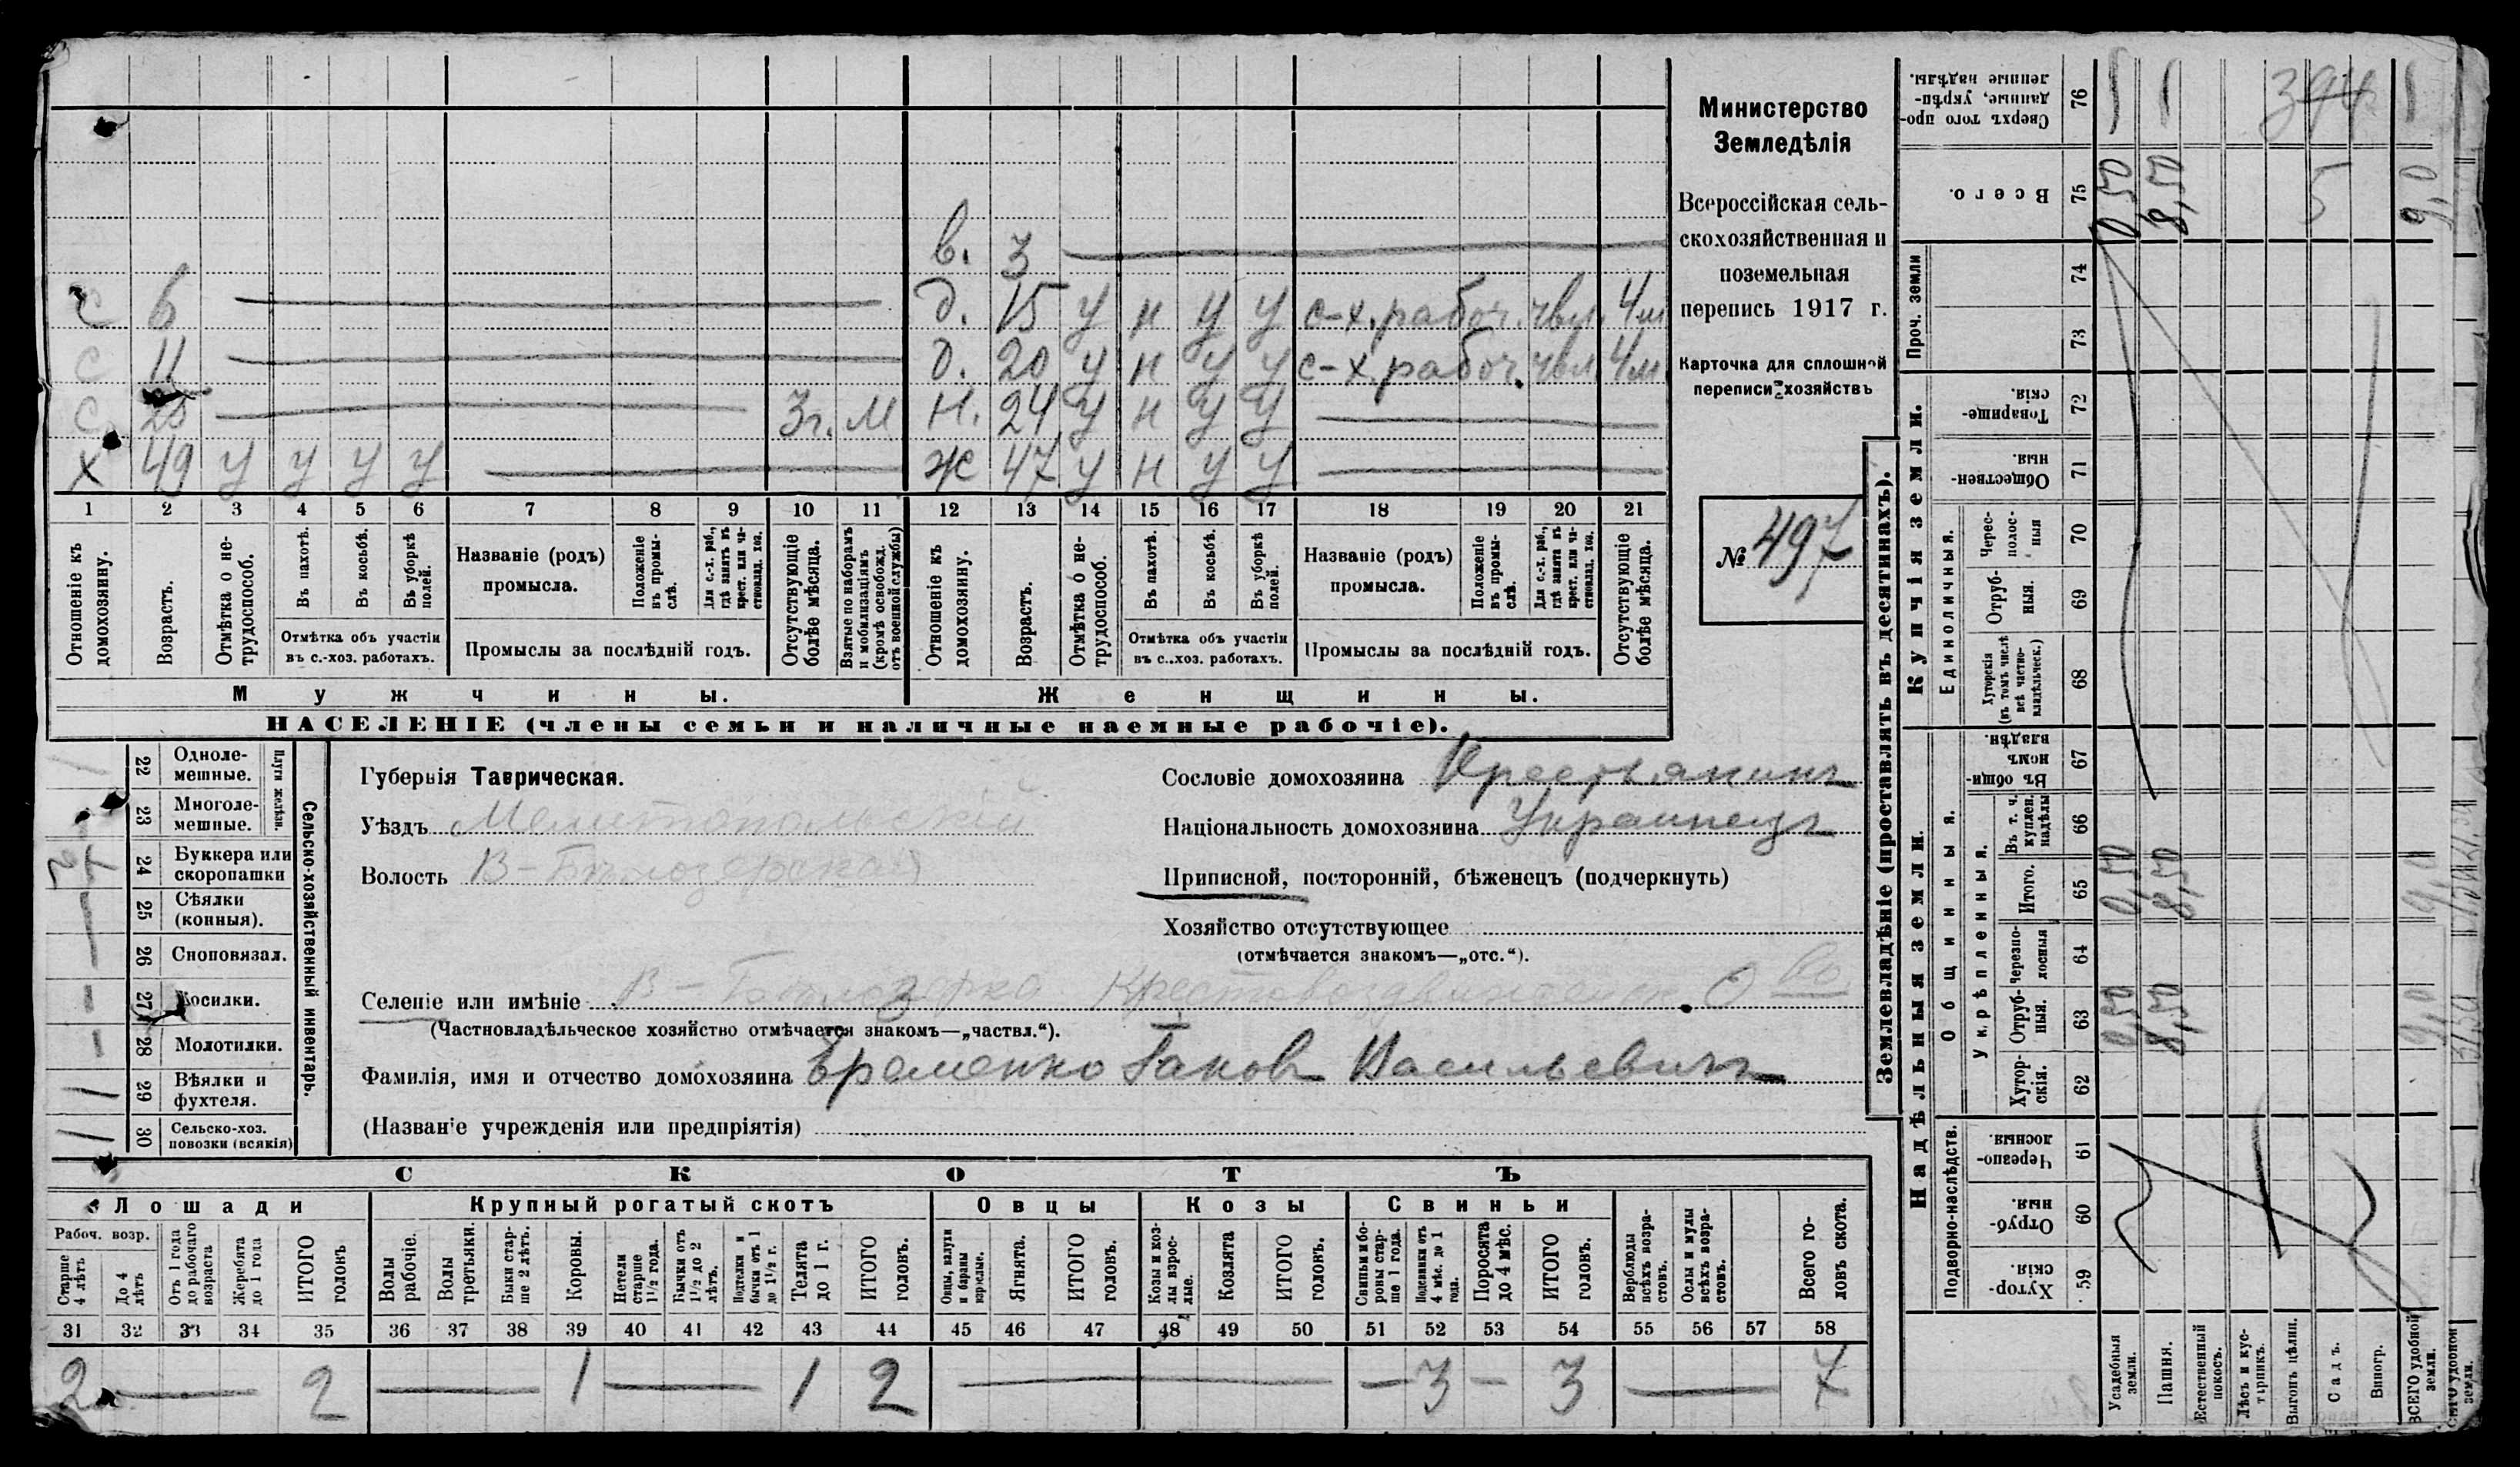 в. 3
с 6 д. 15 у н у у с-х. рабоч. чвл. 4м
с 11 д. 20 у н у у с-х. рабоч. чвл. 4м
с 3г. М Н. 24 у н у у
х 49 у у у у ж 47 у н у у
1 2 3 4 5 6 7 8 9 10 11 12 13 14 15 16 17 18 19 20 21
Отношеніе къ домохозяину.
Возрастъ.
Отмѣтка о нетрудоспособ.
Въ пахотѣ.
Въ косьбѣ.
Въ уборкѣ полей.
Отмѣтка объ участіи въ с.-хоз. работахъ.
Названіе (родъ) промысла.
Положеніе въ промыслѣ.
Для с.-х. раб., гдѣ занятъ въ крест. или частновлад. хоз.
Промыслы за послѣдній годъ.
Отсутствующіе болѣе мѣсяца.
Взятые по наборамъ и мобилизаціямъ (кромѣ освобожд. отъ военной службы)
Отношеніе къ домохозяину.
Возрастъ.
Отмѣтка о нетрудоспособ.
Въ пахотѣ.
Въ косьбѣ.
Въ уборкѣ полей.
Отмѣтка объ участіи въ с..хоз. работахъ.
Названіе (родъ) промысла.
Положеніе въ промыслѣ.
Для с.-х. раб., гдѣ занятъ въ крест. или частновлад. хоз.
Промыслы за послѣдній годъ.
Отсутствующіе болѣе мѣсяца.
Мужчины. Женщины.
НАСЕЛЕНІЕ (члены семьи и наличные наемные рабочіе).
Министерство
Земледѣлія
Всероссійская сель-
скохозяйственная и
поземельная
перепись 1917 г.
Карточка для сплошной
переписи хозяйствъ
№ 497
22 Однолемешные.
23 Многолемешные.
Плуги желѣзн.
24 Буккера или скоропашки
25 Сѣялки (конныя).
26 Сноповязал.
27 Косилки.
28 Молотилки.
29 Вѣялки и фухтеля.
30 Сельско-хоз. повозки (всякія)
Сельско-хозяйственный инвентарь.
Губернія Таврическая.
Уѣздъ Мелитопольскій
Волость В-Бѣлозерская
Сословіе домохозяина Крестьянинъ
Національность домохозяина Украинецъ
Приписной, посторонній, бѣженецъ (подчеркнуть)
Хозяйство отсутствующее
(отмѣчается знакомъ—„отс.“).
Селеніе или имѣніе В-Бѣлозерка Крестовоздвиженск. О во
(Частновладѣльческое хозяйство отмѣчается знакомъ—„частвл.“).
Фамилія, имя и отчество домохозяина Ераменко Яковъ Васильевичъ
(Названіе учрежденія или предпріятія)
СКОТЪ
Лошади Крупный рогатый скотъ Овцы Козы Свиньи
Рабоч. возр.
Старше 4 лѣтъ
До 4 лѣтъ
Отъ 1 года до рабочаго возраста
Жеребята до 1 года
ИТОГО головъ
Волы рабочіе.
Волы третьяки.
Быки старше 2 лѣтъ.
Коровы.
Нетели старше 1½ года.
Бычки отъ 1½ до 2 лѣтъ.
Подтелки и бычки отъ 1 до 1½ г.
Телята до 1 г.
ИТОГО головъ.
Овцы, валухи и бараны взрослые.
Ягнята.
ИТОГО головъ.
Козы и козлы взрослые.
Козлята
ИТОГО головъ.
Свиньи и боровы старше 1 года.
Подсвинки отъ 4 мѣс. до 1 года.
Поросята до 4 мѣс.
ИТОГО головъ.
Верблюды всѣхъ возрастовъ.
Ослы и мулы всѣхъ возрастовъ.
Всего головъ скота.
31 32 33 34 35 36 37 38 39 40 41 42 43 44 45 46 47 48 49 50 51 52 53 54 55 56 57 58
2 2 1 1 2 3 3 7
Землевладѣніе (проставлять въ десятинахъ).
Сверхъ того проданные, укрѣпленные надѣлы. 76 394
Всего. 75 0,50 8,50 5 9,0
Проч. земли 74 73
Купчія земли.
Товарищескія. 72
Общественныя. 71
Единоличныя.
Чересполосныя 70
Отрубныя. 69
Хуторскія (въ томъ числѣ всѣ частновладѣльческ.) 68
Надѣльныя земли.
Общинныя.
Въ общинномъ владѣн. 67
Укрѣпленныя.
Въ т. ч. куплен. надѣлы 66
Итого. 65 0,50 8,50 9,0
Черезполосныя 64
Отрубныя. 63 0,50 8,50 9,0
Хуторскія. 62
Подворно-наслѣдств.
Черезполосныя. 61
Отрубныя. 60
Хуторскія. 59
Усадебныя земли.
Пашня.
Естественный покосъ.
Лѣсъ и кустарникъ.
Выгонъ цѣлин.
Садъ.
Виногр.
ВСЕГО удобной земли.